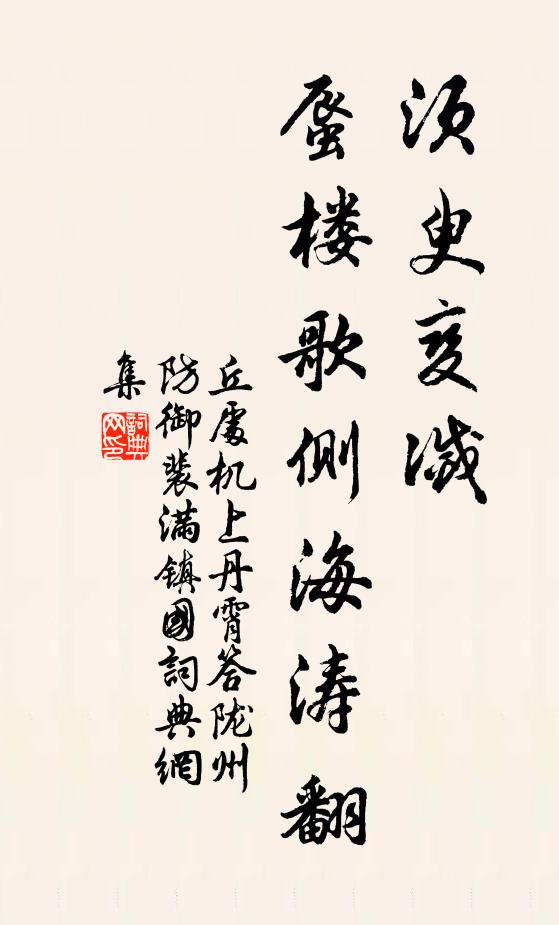 须臾变灭
蜃楼歌侧海涛翻
丘處机上丹霄答陇州
防御裴满镇國詞典網
集
詞典
网印